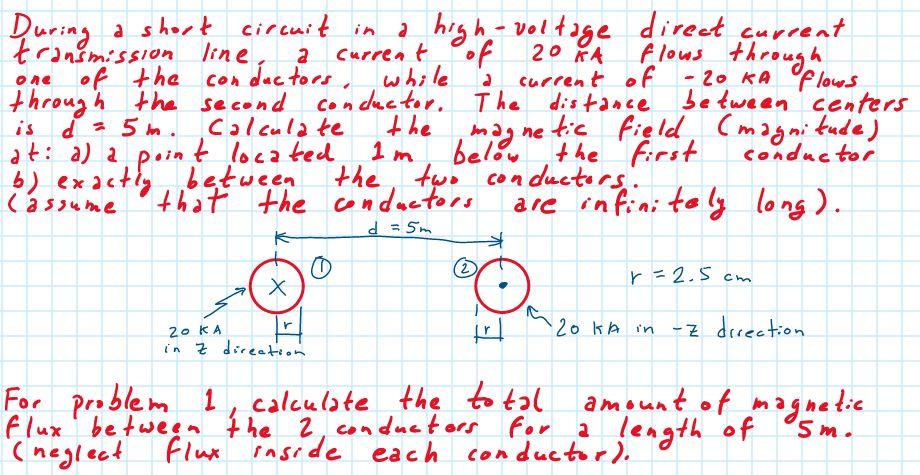 During a short circuit in a high-voltage direct current
transmission line, a current of 20 KA flows through
one of the conductors, while a current of -20 KA flows
through the second conductor. The distance between centers
is d = 5m. Calculate the magnetic field (magnitude)
at: a) a point located 1m below the first conductor
b) exactly between the two conductors.
(assume that the conductors are infinitely long).
d = 5m
① ②
r = 2.5 cm
X
20 KA
in z direction
r
r
20 KA in -z direction
For problem 1, calculate the total amount of magnetic
flux between the 2 conductors for a length of 5m.
(neglect flux inside each conductor).